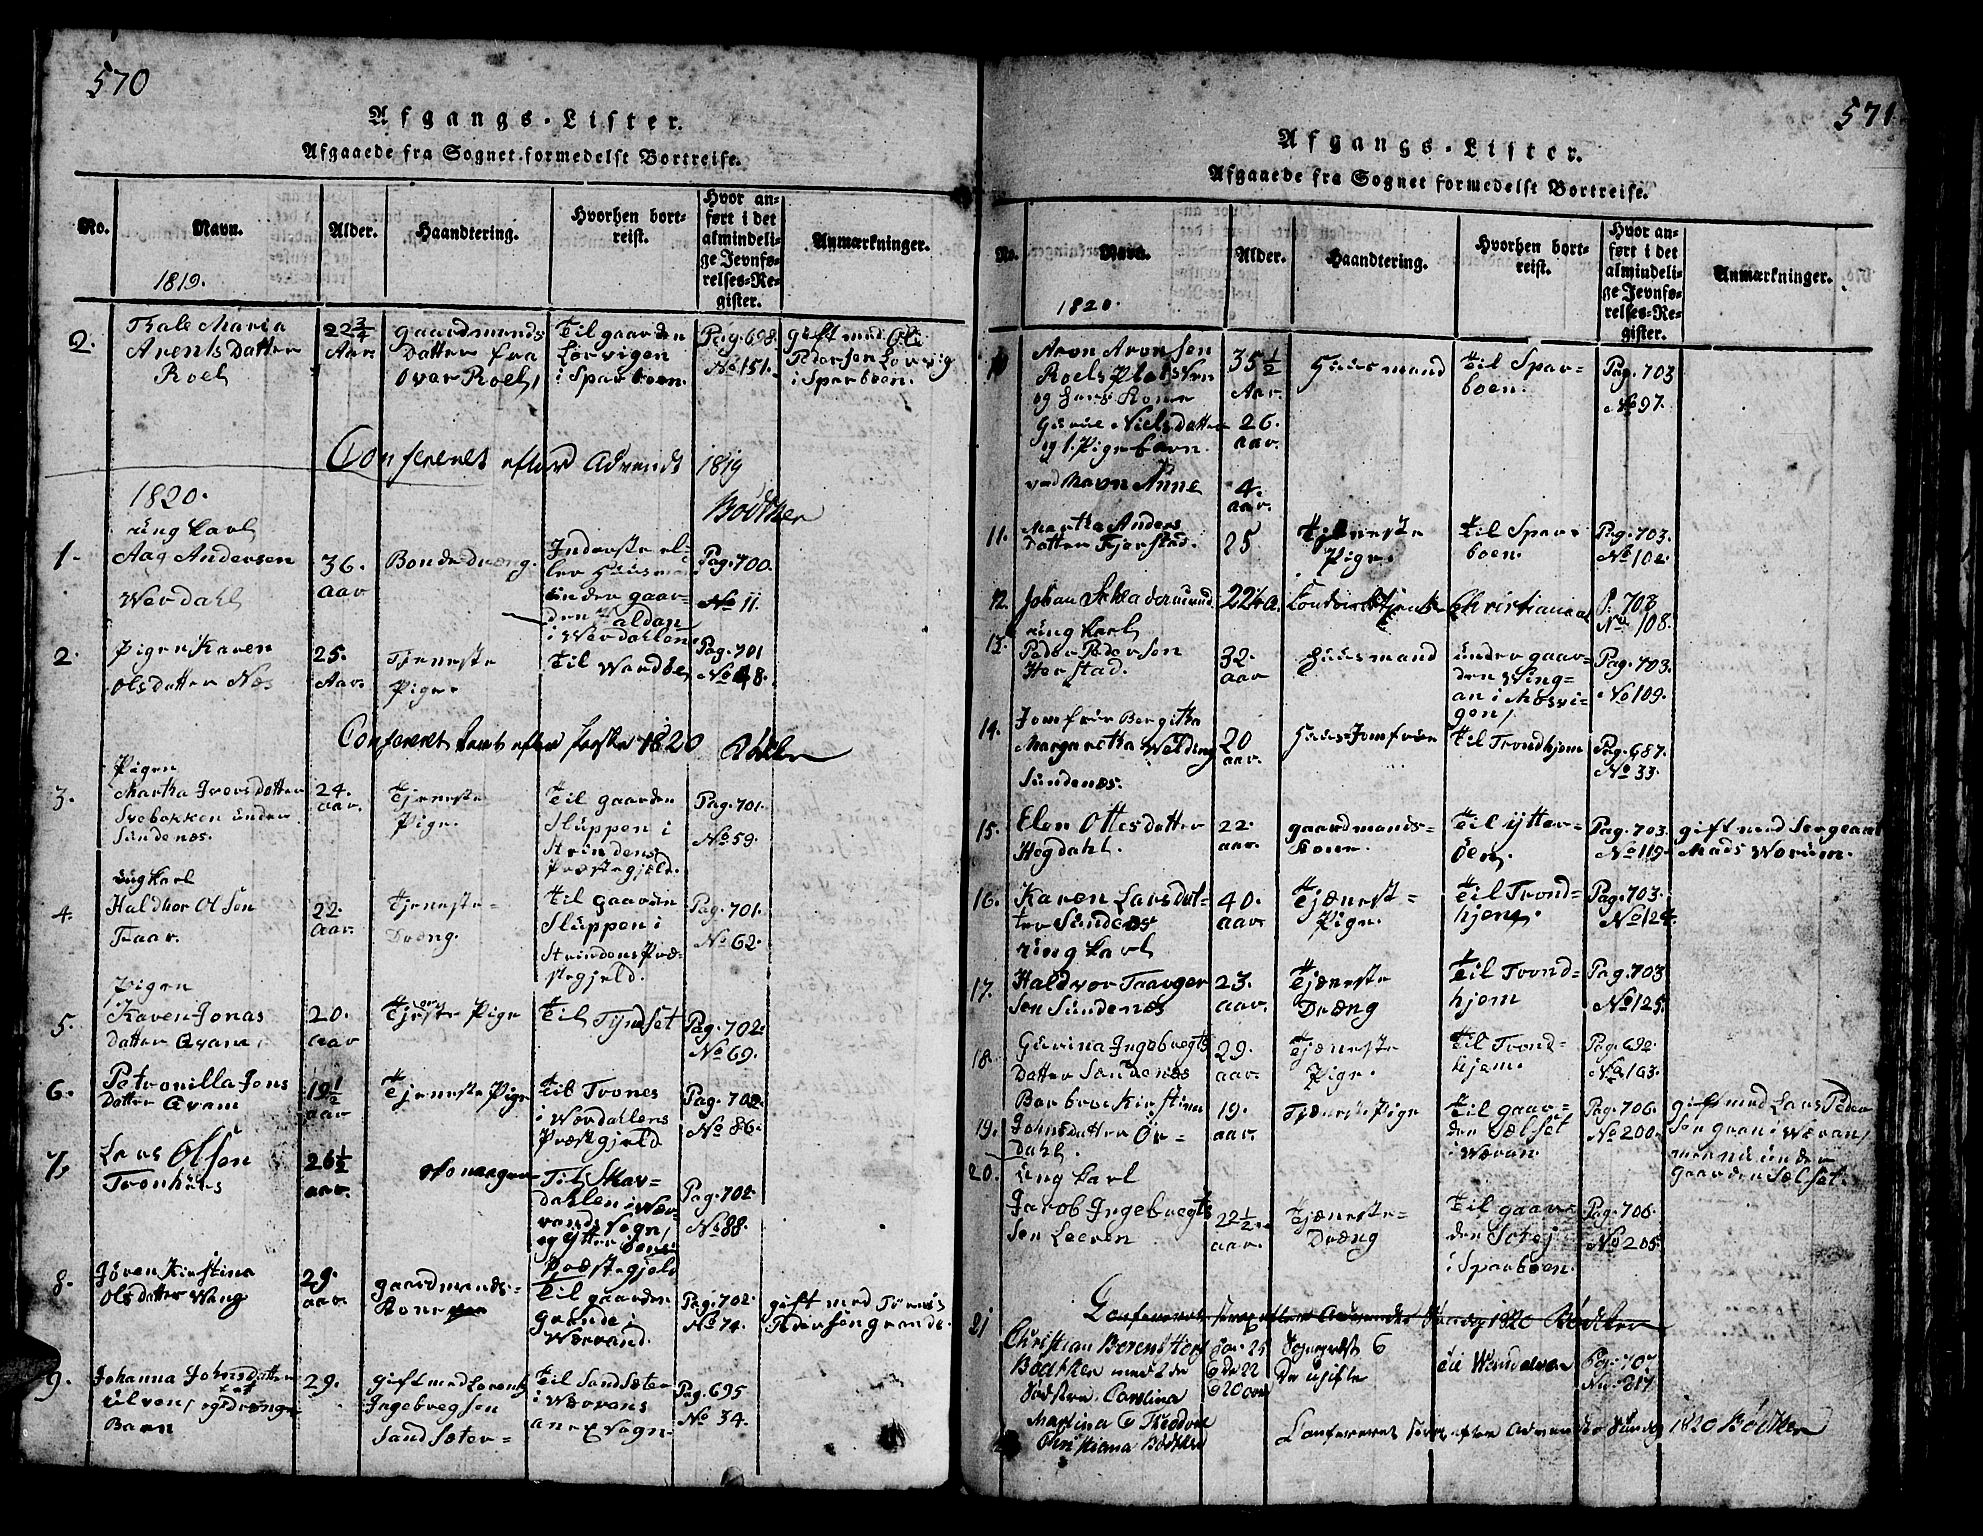 570
Afgangs-Lister.
Afgaaede fra Sognet formedelst Bortreise.
No.
Navn.
1819.
Alder.
Haandtering.
Hvorhen bort-
reist.
Hvor an-
ført i det
almindeli-
ge Jevnfø-
relses-Re-
gister.
Anmærkninger.
2.
Thale Maria
Arents Datter
Roel
22 3/4
Aar
gaardmands
Datter fra
Over Roel,
til gaarden
Lørvigen
i Sparboen.
Pag. 698.
No 151.
gift med Ole
Pedersen Lorvig
i Sparboen.
Confereret efter Advendt 1819
Bødtker
1820.
1.
ung Karl
Aag Andersen
Werdahl
36.
aar
Bondedræng.
Inderste el-
ler Huusmand
under gaar-
den Haldan
i Werdahlen
Pag. 700.
No 11.
2.
Pigen Karen
Olsdatter Næs
25.
Aar.
Tjeneste
Pige
til Wardøe
Pag. 701
No 48.
Confereret efter Paaske 1820 Bødtker
3.
Pigen
Martha Iversdatter
Svebakken under
Sundenæs.
24.
aar.
Tjeneste
Pige.
til gaarden
Sluppen i
Strindens
Præstegjeld.
Pag. 701.
No 59.
4.
ung Karl
Haldhor Olsen
Faar.
22.
aar.
tjeneste-
Dræng.
til gaarden
Sluppen i
Strindens Præ-
stegjeld.
Pag. 701.
No 62.
5.
Pigen
Karen Jonas
datter Gram,
20.
aar
Tjeneste Pige
til Tyndset
Pag. 702.
No 69.
6.
Petronilla Jons
datter Gram
19 1/2
aar
tjeneste Pige
til Trones
i Værdahlens
Præstgjeld
Pag. 702.
No 86.
7.
Lars Olsen
Tronhuus
26 1/2
aar.
til Skav-
dahlen i Vær-
rands Sogn,
og Ytterøens
Præstegjeld
Pag. 702.
No 88.
8.
Jøren Kirstina
Olsdatter Wang
29.
aar.
gaardmands-
Kone
til gaarden
Grande i
Wærrand.
Pag. 702.
No 74.
gift med Tørris
Pedersen grande.
9.
Johanna Johnsdatter
Ulven, og et drenge
Barn
29.
gift med Lorents
Ingebregsen
Sandsæter-
til Sandsæter
i Wærens
anex Sogn.
Pag. 695
No 34.
571
Afgangs-Lister.
Afgaaede fra Sognet formedelst Bortreise.
No.
Navn.
1820.
Alder.
Haandtering.
Hvorhen bort-
reist.
Hvor an-
ført i det
almindeli-
ge Jevnfø-
relses-Re-
gister.
Anmærkninger.
10
Aron Aronsen
Roels Pladsen
og hans Kone
Gurue Nielsdatter
og 1. Pigebarn
ved Navn Anne
35 1/2
Aar.
26.
aar.
4.
aar.
Huusmand
til Spar-
boen.
Pag. 703
No 97.
11.
Martha Anders
Datter Fjerstad.
25
Tjeneste
Pige.
til Spar-
boen.
Pag. 703.
No 102.
12.
Johan
22 1/2 a.
Christiansund
P. 703
No 108.
13.
ung Karl
Peder Pedersen
Herstad.
32.
aar
Huusmand
under gaar-
den Wing-
an i Mosvi-
gen,
Pag. 703.
No 109.
14.
Jomfrue Bergitha
Margaretha Welding
Sundenæs.
20
aar.
Huus Jomfrue
til Trondhjem
Pag. 687.
No 33.
15.
Elen Ottesdatter
Hegdahl.
22.
aar.
gaardmands-
Kone.
til Ytter-
øen.
Pag. 703.
No 119.
gift med Sergeant
Mads Worum.
16.
Karen Larsdat-
ter Sundenæs
40.
aar.
Tjæneste-
Pige.
til Trond-
hjem.
Pag. 703.
No 124.
17.
ung Karl
Haldvor Taarger
sen Sundenæs
23.
aar.
Tjæneste
Dræng
til Trond-
hjem
Pag. 703
No 125.
18.
Gurina Ingebregts
datter Sundenæs
29.
aar.
Tjæneste
Pige.
til Trond-
hjem.
Pag. 692.
No 163.
19.
Barbroe Kirstina
Johnsdatter Ør-
dahl.
19.
aar.
Tjæneste Pige
til gaar-
den Sælset
i Wæran.
Pag. 706.
No 200.
gift med Lars Peder
sen gran i Wæran,
men nu under
gaarden Sælset.
20.
ung Karl
Jacob Ingebregts
sen Leeren
22 1/2
aar.
Tjæneste-
Dræng
til gaar-
den
i Sparboen.
Pag. 706.
No 205.
Confereret efter Advendts Søndag 1820 Bødtker
21
Christian
Bødtker med de
Søstre. Carolina
Martina &
Christiana Bødtker
Aar 25
22
20 aar
6
De ugifte
til Wærdalen
Pag. 707
No 217
Confereret efter Advendts Søndag 1820 Bødtker